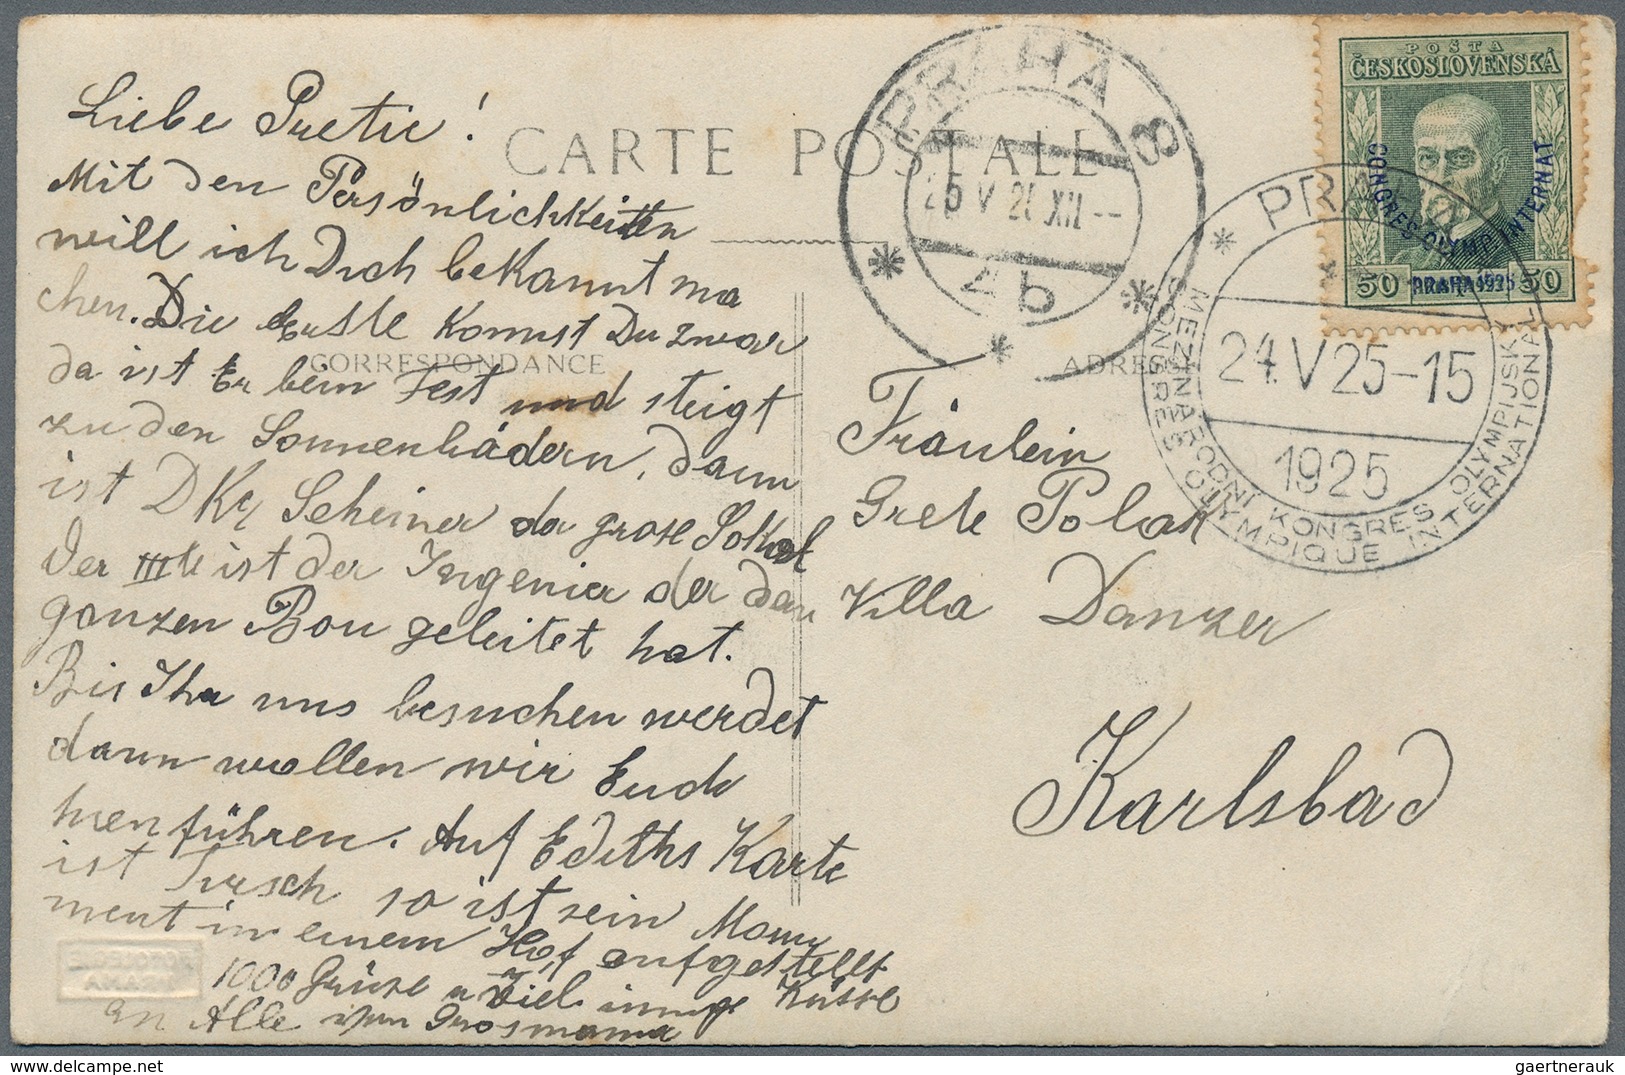 Liebe Pretie!
Mit den Persönlichkeitten
will ich Dich bekannt ma
chen. Die Erste Konnst Du zwar
da ist Er beim Fest und steigt
zu den Sonnenbädern, dann
ist D Scheiner der grose Sokol
Der IIIte ist der Ingenier der den
ganzen Bou geleitet hat.
Bis Ihr uns besuchen werdet
dann wollen wir Euch
hienführen. Auf Ediths Karte
ist Tyrsch so ist sein Monu
ment in einem Hof aufgestellt
1000 Grüse u Viel innige Küsse
an Alle von Grosmama
CARTE POSTALE
CORRESPONDANCE
ADRESSE
Fräulein
Grete Polak
Villa Danzer
Karlsbad
PRAHA 8
25 V 25 XII
2b
POŠTA
ČESKOSLOVENSKÁ
CONGRES OLYMP. INTERNAT.
PRAHA 1925
50 50
PRAHA
24.V 25-15
1925
MEZINÁRODNÍ KONGRES OLYMPIJSKÝ
CONGRÉS OLYMPIQUE INTERNATIONAL
PRAHA
gaertnerauk / cpaphil.com